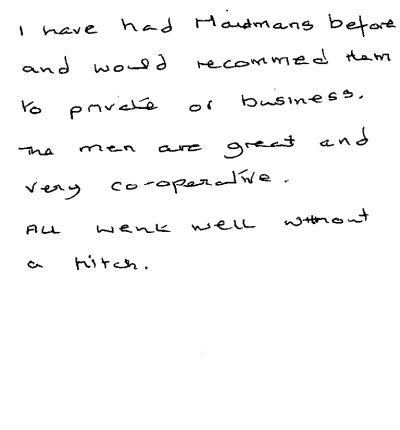 I have had Hardmans before
and would recommed them
to private or business.
The men are great and
very co-operative.
All wenk well without
a hitch.